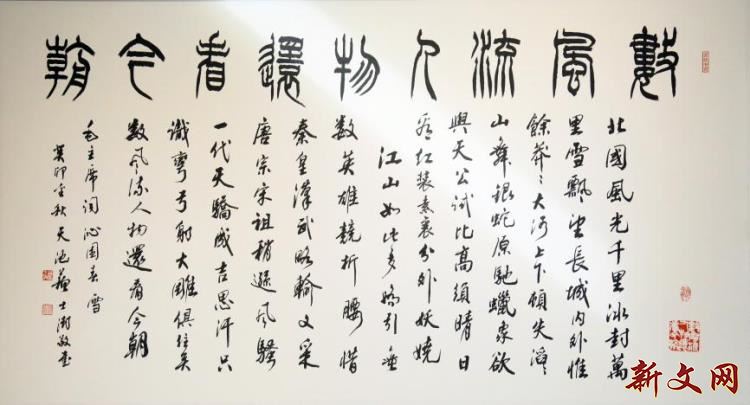 數風流人物還看今朝
北國風光千里冰封萬
里雪飄望長城内外惟
餘莽〻大河上下頓失滔〻
山舞銀蛇原馳蠟象欲
與天公試比高須晴日
看红装素裹分外妖娆
江山如此多嬌引無
數英雄競折腰惜
秦皇漢武略輸文采
唐宗宋祖稍遜风騷
一代天驕成吉思汗只
識彎弓射大雕俱往矣
数风流人物還看今朝
毛主席词沁园春雪
癸卯金秋天池
新文网